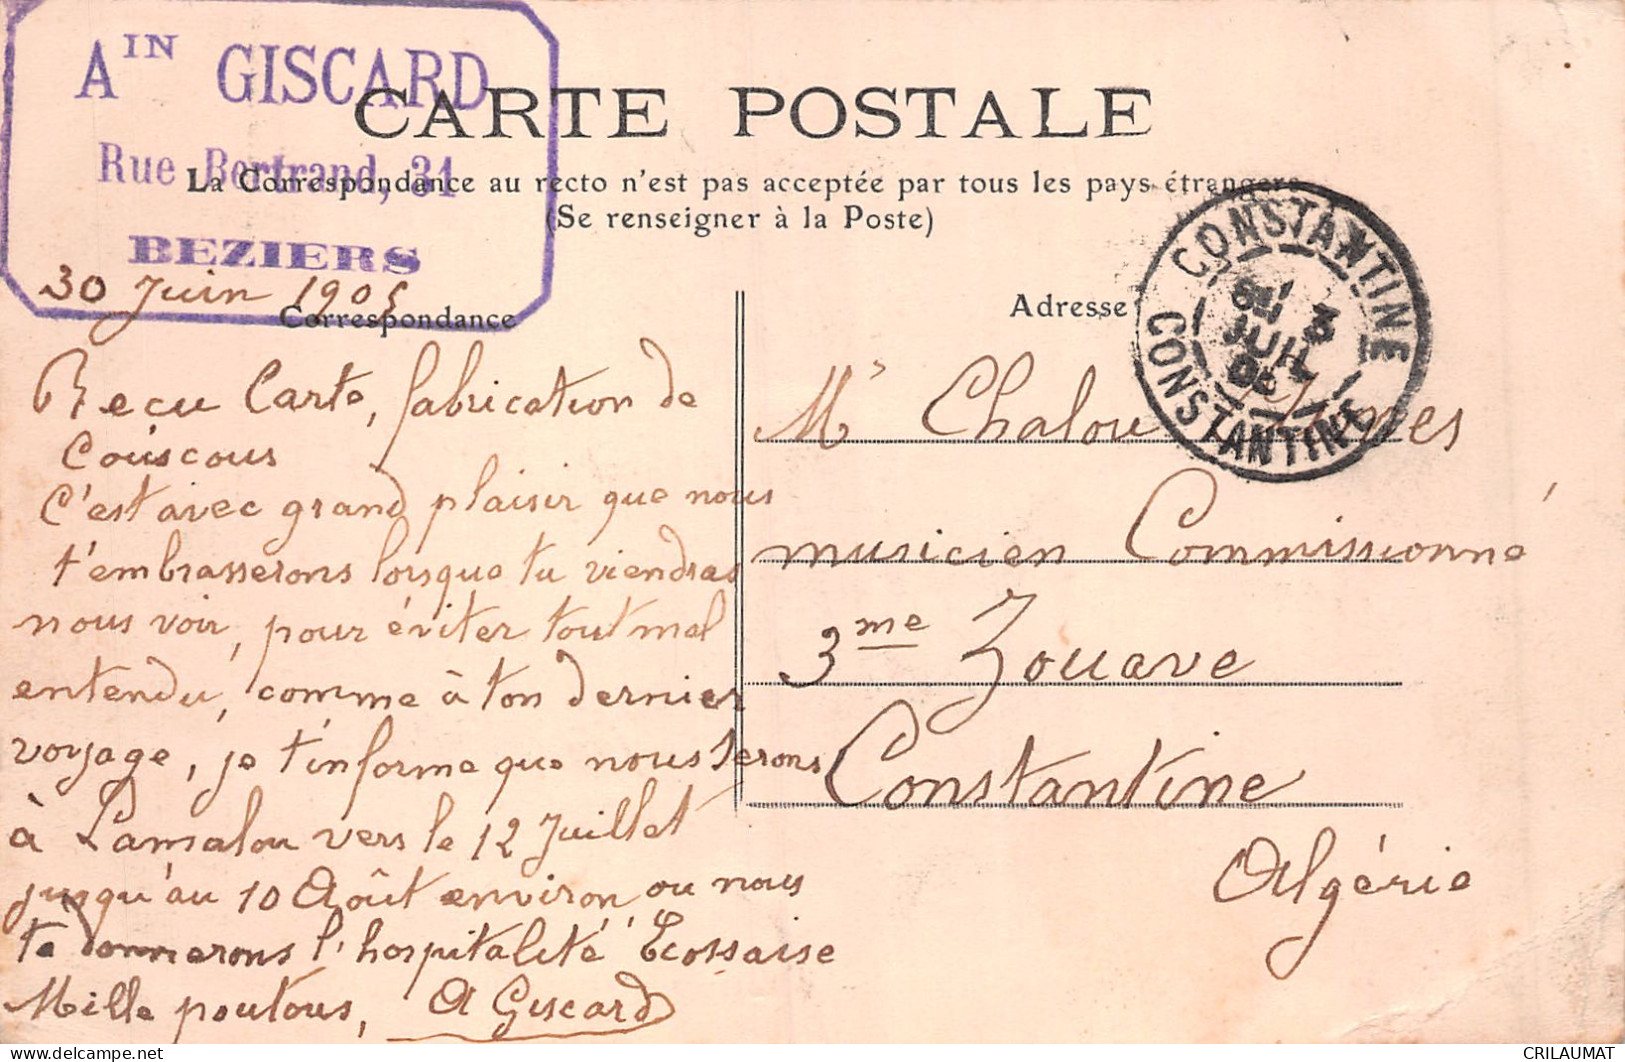 AIN GISCARD
Rue Bertrand, 31
BEZIERS
CARTE POSTALE
La Correspondance au recto n'est pas acceptée par tous les pays étrangers
(Se renseigner à la Poste)
30 Juin 1905
Correspondance
Reçu Carte, fabrication de
Couscous
C'est avec grand plaisir que nous
t'embrasserons lorsque tu viendras
nous voir, pour éviter tout mal
entendu, comme à ton dernier
voyage, je t'informe que nous serons
à Lamalou vers le 12 Juillet
jusqu'au 10 Août environ ou nous
te donnerons l'hospitalité Ecossaise
Mille poutous, A Giscard
Adresse
CONSTANTINE
3
JUIL
05
CONSTANTINE
Mr Chalou
musicien Commissionné
3me Zouave
Constantine
Algérie
CRILAUMAT